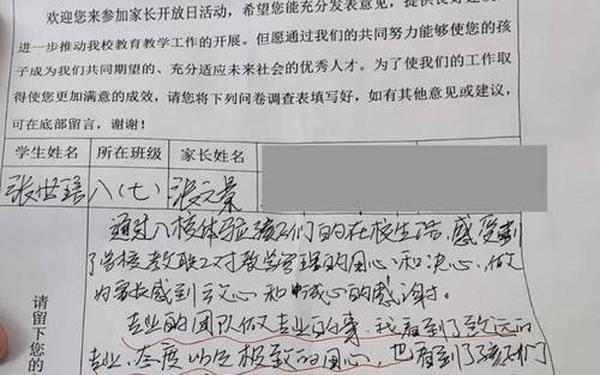 欢迎您来参加家长开放日活动，希望您能充分发表意见，提供良好建议
进一步推动我校教育教学工作的开展。但愿通过我们的共同努力能够使您的孩
子成为我们共同期望的、充分适应未来社会的优秀人才。为了使我们的工作取
得使您更加满意的成效，请您将下列问卷调查表填写好，如有其他意见或建议，
可在底部留言，谢谢！
学生姓名 所在班级 家长姓名
张世 八（七） 张文景
通过入校体验孩子们的在校生活，感受到
了学校教职工对教学管理的用心和决心，做
为家长感到安心和由衷的感谢。
专业的团队做专业的事，我看到了致远的
专业、态度以及极致的用心，也看到了孩子们
请留下您的